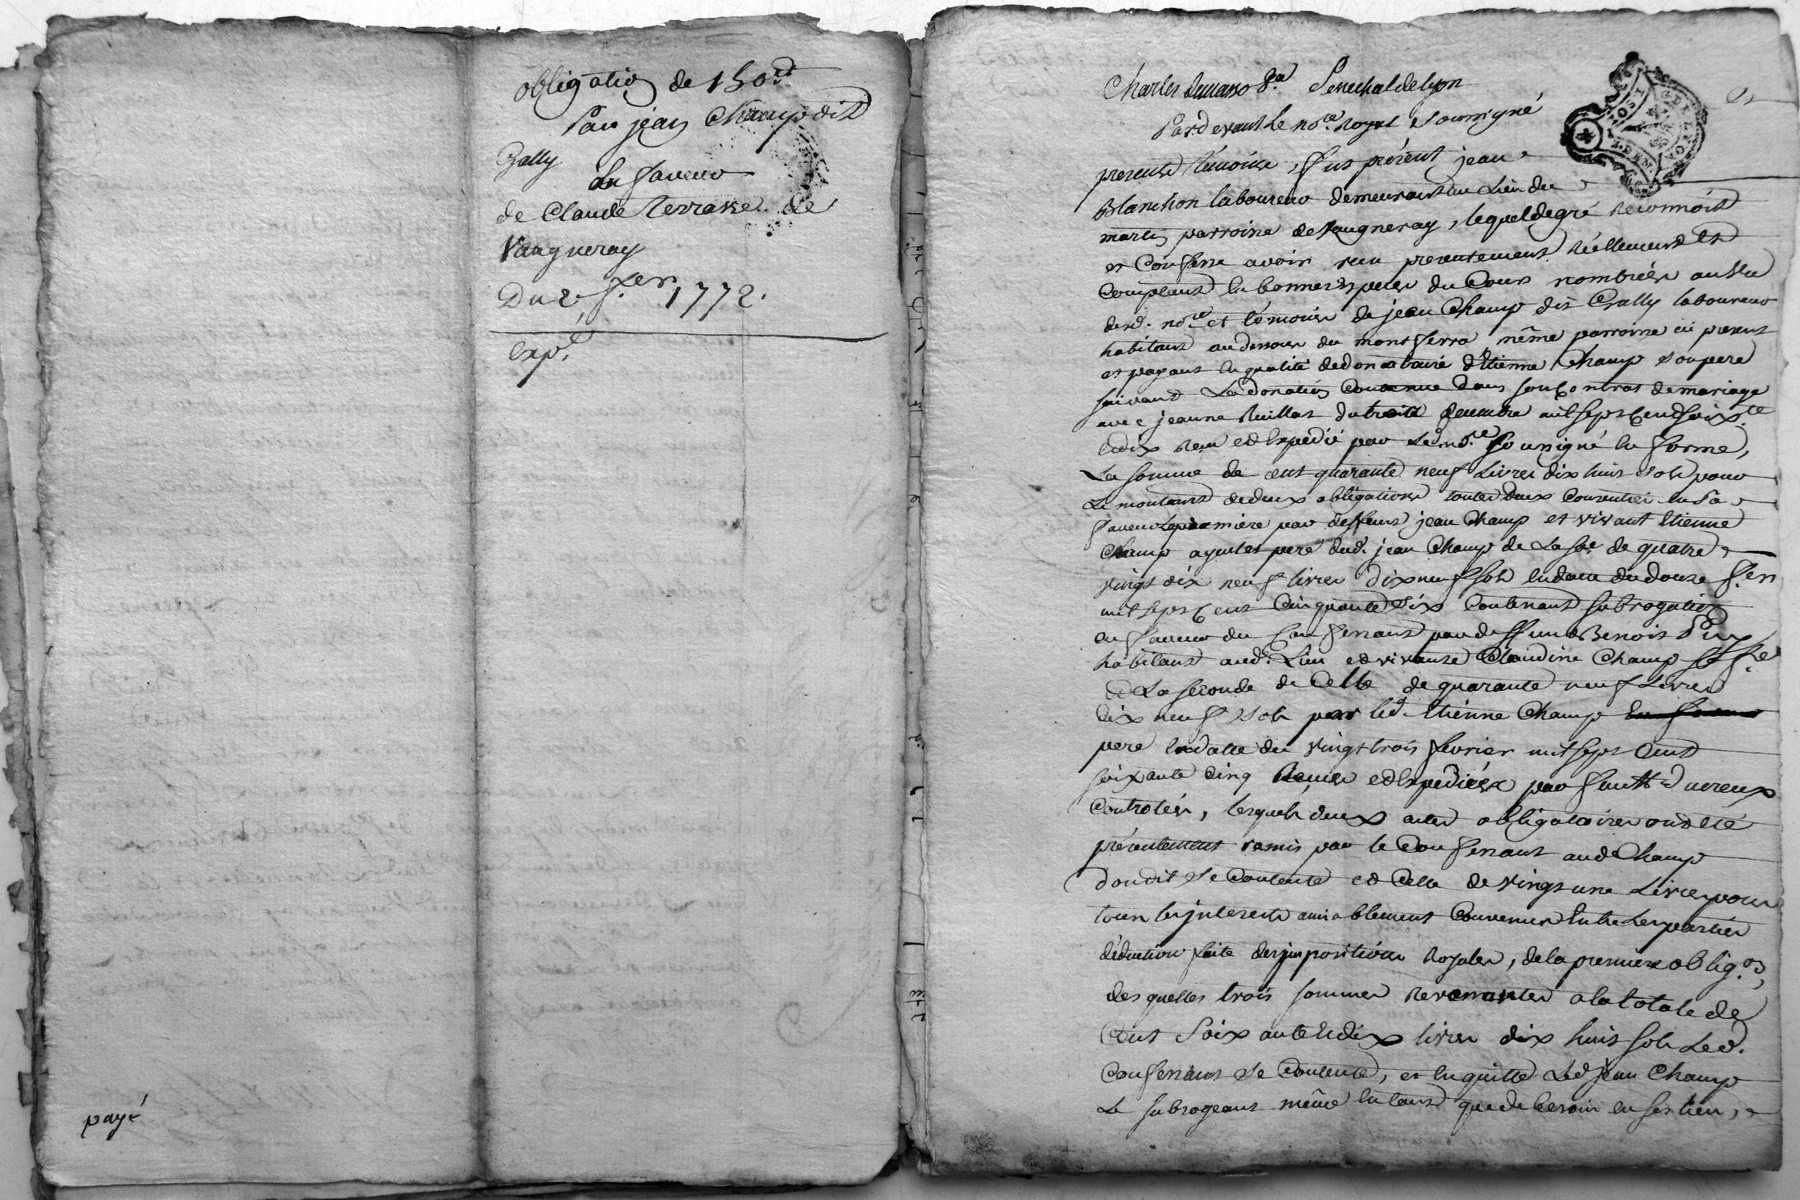 obligatio͠n de 150lt
Par jean Champ dit
Grally
En faveur
de Claude Terrasse de
Vaugneray
Du 2e Jer 1772.
Exp.é
payé
Charles Sénéchal de lyon
Pardevant le nore. Royal soussigné
presents témoins, fut présent jean
Blanchon laboureur demeurant au Lieu du
martin parroisse de Vaugneray, lequel de gré reconnoit
et Confesse avoir reçu presentement réellement et
Comptant en bonnes especes du Cours nombrées au Vu
desd. nore et témoins de jean Champ dit Grally laboureur
habitant au dessous du mont ferra même parroisse ici present
et payant en qualité de donataire d'Etienne Champ son pere
suivant La donation Contenue dans son Contrat de mariage
avec jeanne Ruillat du trente decembre mil sept Cent soixte
et dix Reçu et Expedié par Led. nore. soussigné en forme,
La somme de cent quarante neuf Livres dix huit sols pour
Le montant de deux obligations toutes deux Consenties en sa
faveur La premiere par deffunt jean Champ et vivant Etienne
Champ ayeul et pere dud. jean Champ de La soe. de quatre
vingt dix neuf livres dix neuf sols en datte du douze
mil sept Cent Cinquante Six Contenant subrogation
en faveur du Confessant par deffunt Benoit
habitant aud. Lieu et vivante Claudine Champ sa fe
et La seconde de Celle de quarante neuf Livres
dix neuf sols par led. Etienne Champ
pere En datte du vingt trois fevrier mil sept Cent
soixante Cinq Reçues et Expediées par feu Me Ducreux
Controlées, lesquels deux actes obligatoires ont eté
présentement remis par le Confessant aud. Champ
dont dit se Contente et Celle de vingt une Livres pour
tous les jnterests amiablement Convenus Entre Les parties
déduction faite des jmpositions Royales, de la premiere oblig.on
desquelles trois sommes Revenantes a la totale de
Cent Soixante et dix livres dix huit sols Led.
Confessant se Contente, et En quitte Led. jean Champ
Le subrogeant même En tant que de besoin en ses lieu,